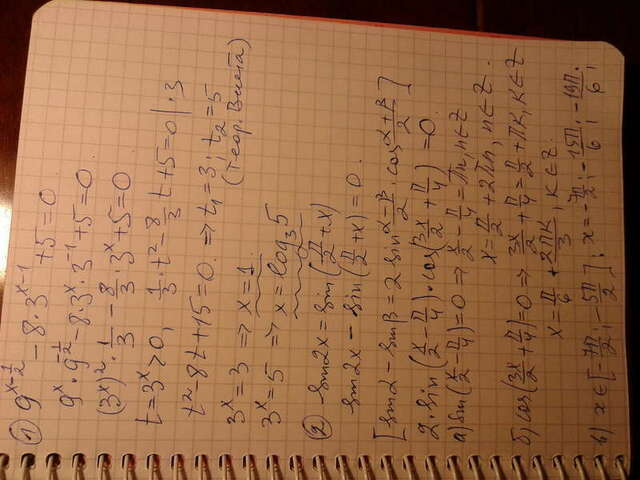 ① 9^(x-1/2) - 8·3^(x-1) + 5 = 0
9^x·9^(-1/2) - 8·3^x·3^(-1) + 5 = 0
(3^x)²·1/3 - 8/3·3^x + 5 = 0
t = 3^x > 0, 1/3·t² - 8/3 t + 5 = 0 | ·3
t² - 8t + 15 = 0 ⇒ t₁ = 3; t₂ = 5
(теор. Виета)
3^x = 3 ⇒ x = 1
3^x = 5 ⇒ x = log₃5
② sin2x = sin(π/2 + x)
sin2x - sin(π/2 + x) = 0.
[sinα - sinβ = 2 sin (α-β)/2 · cos (α+β)/2]
2·sin(x/2 - π/4)·cos(3x/2 + π/4) = 0
а) sin(x/2 - π/4) = 0 ⇒ x/2 - π/4 = πn, n∈Z
x = π/2 + 2πn, n∈Z.
б) cos(3x/2 + π/4) = 0 ⇒ 3x/2 + π/4 = π/2 + πk, k∈Z
x = π/6 + 2πk/3, k∈Z.
в) x∈[-7π/2; -5π/2]; x = -7π/2; -15π/6; -19π/6;